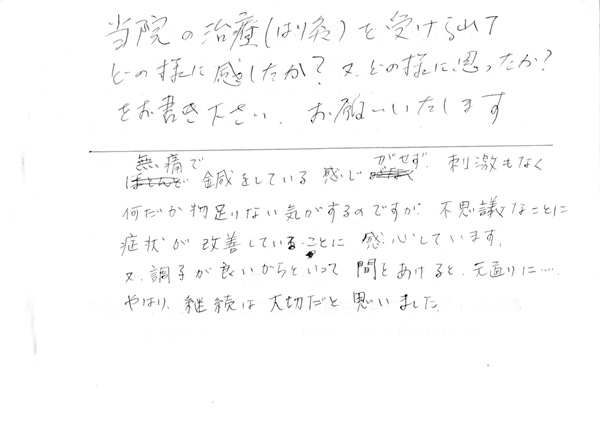 当院の治療(はり灸)を受けられて
どの様に感じたか?又、どの様に思ったか?
をお書き下さい。お願いいたします
無痛で 鍼をしている感じがせず、刺激もなく
何だか物足りない気がするのですが、不思議なことに
症状が改善していることに感心しています。
又、調子が良いからといって間をあけると、元通りに……
やはり、継続は大切だと思いました。